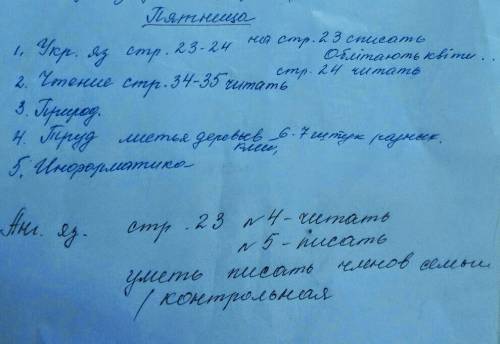 Пятница
1. Укр. яз стр. 23-24 на стр. 23 списать
Облітають квіти..
2. Чтение стр. 34-35 читать стр. 24 читать
3. Природ.
4. Труд листья деревьев 6-7 штук разных.
клей,
5. Информатика
Анг. яз. стр. 23 №4-читать
№5-писать
уметь писать членов семьи
/контрольная